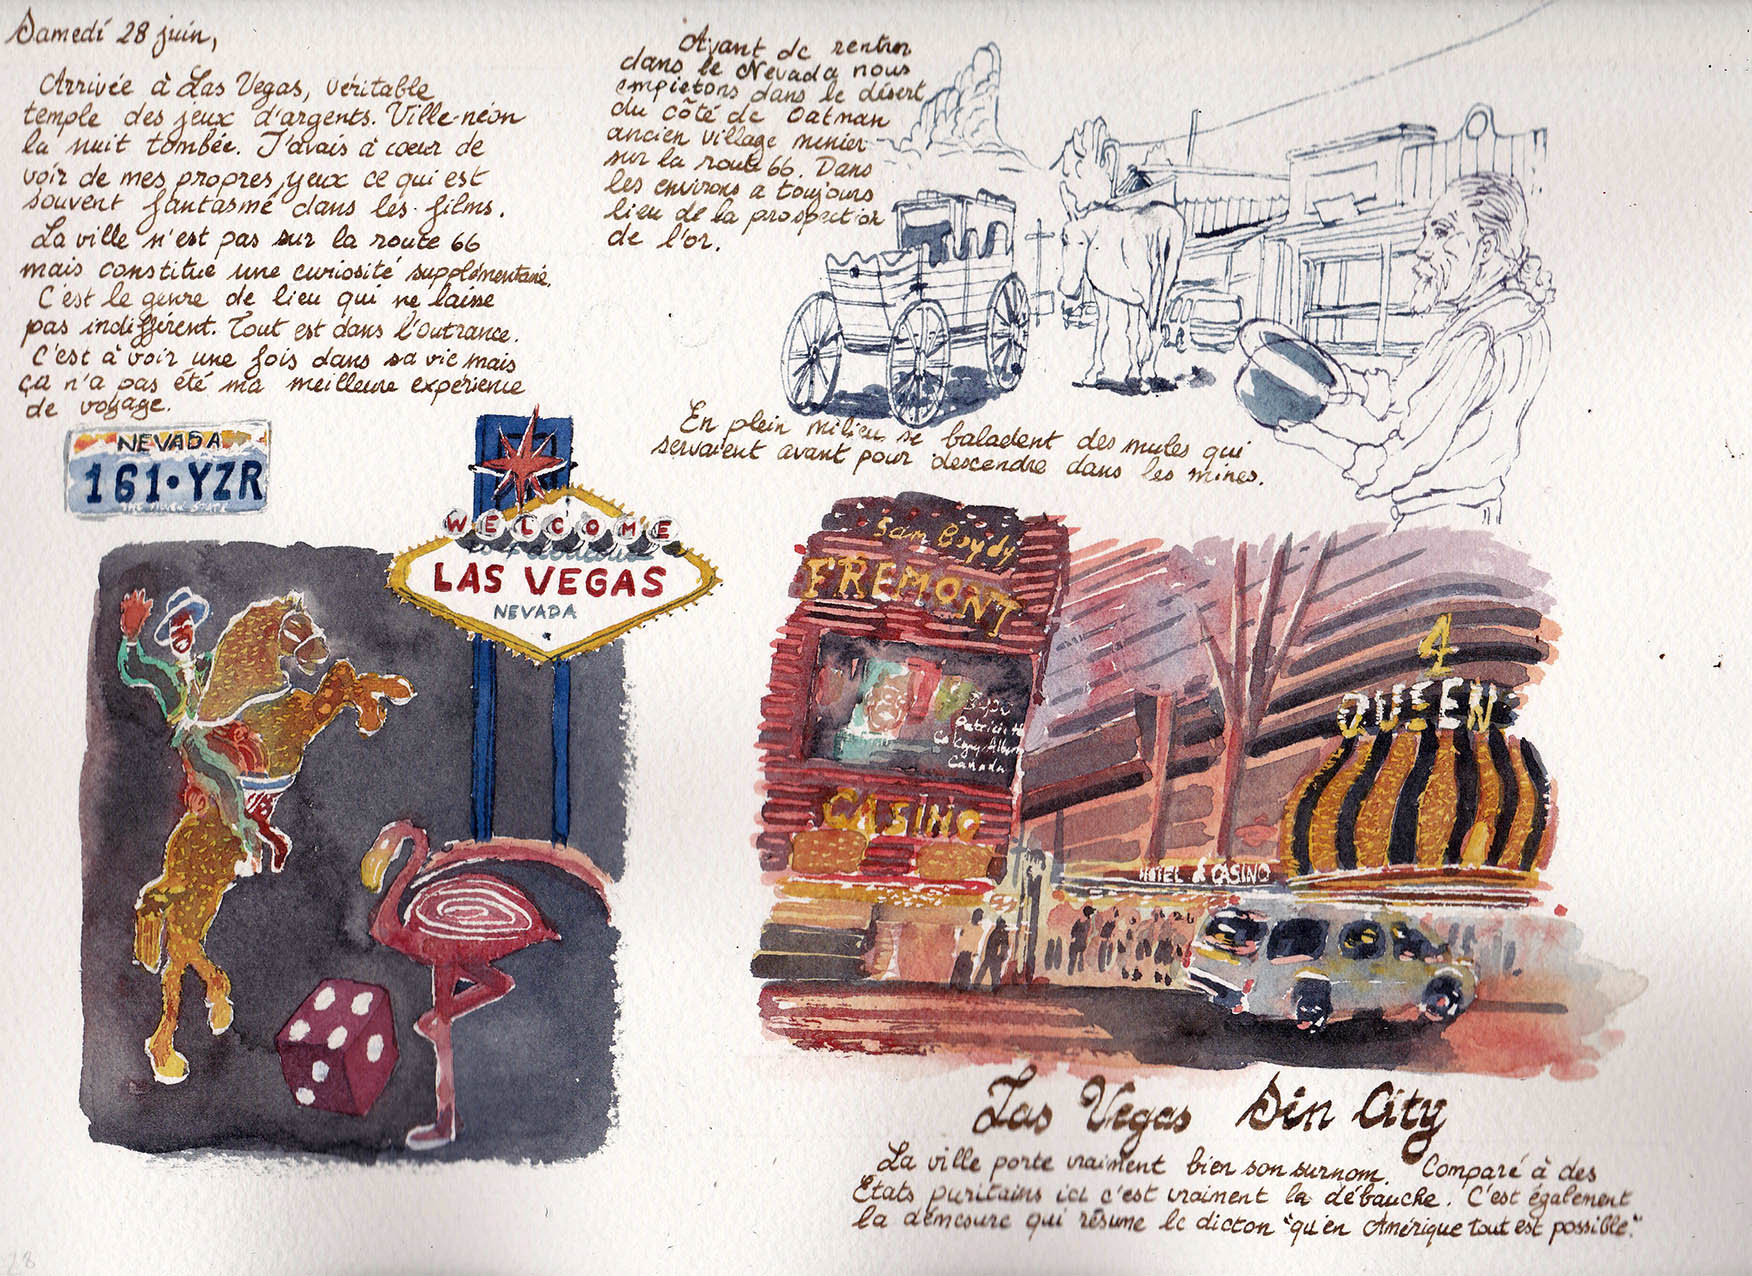 Samedi 28 juin,
Arrivée à Las Vegas, véritable
temple des jeux d'argents. Ville-néon
la nuit tombée. J'avais à cœur de
voir de mes propres yeux ce qui est
souvent fantasmé dans les films.
La ville n'est pas sur la route 66
mais constitue une curiosité supplémentaire.
C'est le genre de lieu qui ne laisse
pas indifférent. Tout est dans l'outrance.
C'est à voir une fois dans sa vie mais
ça n'a pas été ma meilleure expérience
de voyage.
Avant de rentrer
dans le Nevada nous
empietons dans le désert
du côté de Oatman
ancien village minier
sur la route 66. Dans
les environs a toujours
lieu de la prospection
de l'or.
En plein milieu se baladent des mules qui
servaient avant pour descendre dans les mines.
NEVADA
161·YZR
THE SILVER STATE
WELCOME
LAS VEGAS
NEVADA
Sam Boydy
FREMONT
Patricia H
Canada
CASINO
4
QUEEN
HOTEL & CASINO
Las Vegas Sin City
La ville porte vraiment bien son surnom. Comparé à des
Etats puritains ici c'est vraiment la débauche. C'est également
la démesure qui résume le dicton "qu'en Amérique tout est possible."
28